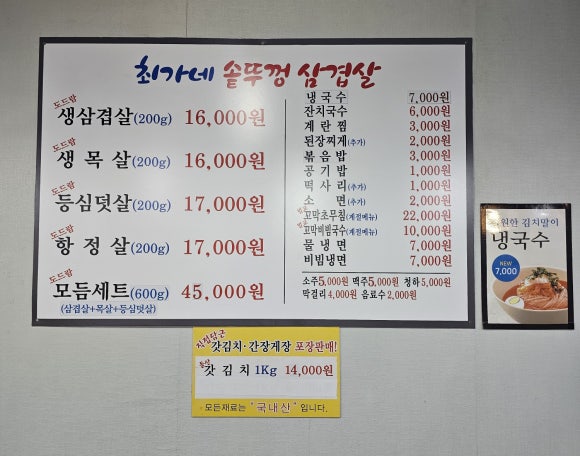 최가네 솥뚜껑 삼겹살
도드람
생삼겹살(200g) 16,000원
도드람
생목살(200g) 16,000원
도드람
등심덧살(200g) 17,000원
도드람
항정살(200g) 17,000원
도드람
모듬세트(600g) 45,000원
(삼겹살+목살+등심덧살)
냉국수 7,000원
잔치국수 6,000원
계란찜 3,000원
된장찌게(추가) 2,000원
볶음밥 3,000원
공기밥 1,000원
떡사리(추가) 1,000원
소면(추가) 2,000원
꼬막초무침(계절메뉴) 22,000원
꼬막비빔국수(계절메뉴) 10,000원
물냉면 7,000원
비빔냉면 7,000원
소주5,000원 맥주5,000원 청하5,000원
막걸리4,000원 음료수2,000원
직접담근
갓김치·간장게장 포장판매!
갓김치 1Kg 14,000원
모든재료는 "국내산" 입니다.
시원한 김치말이
냉국수
NEW
7,000